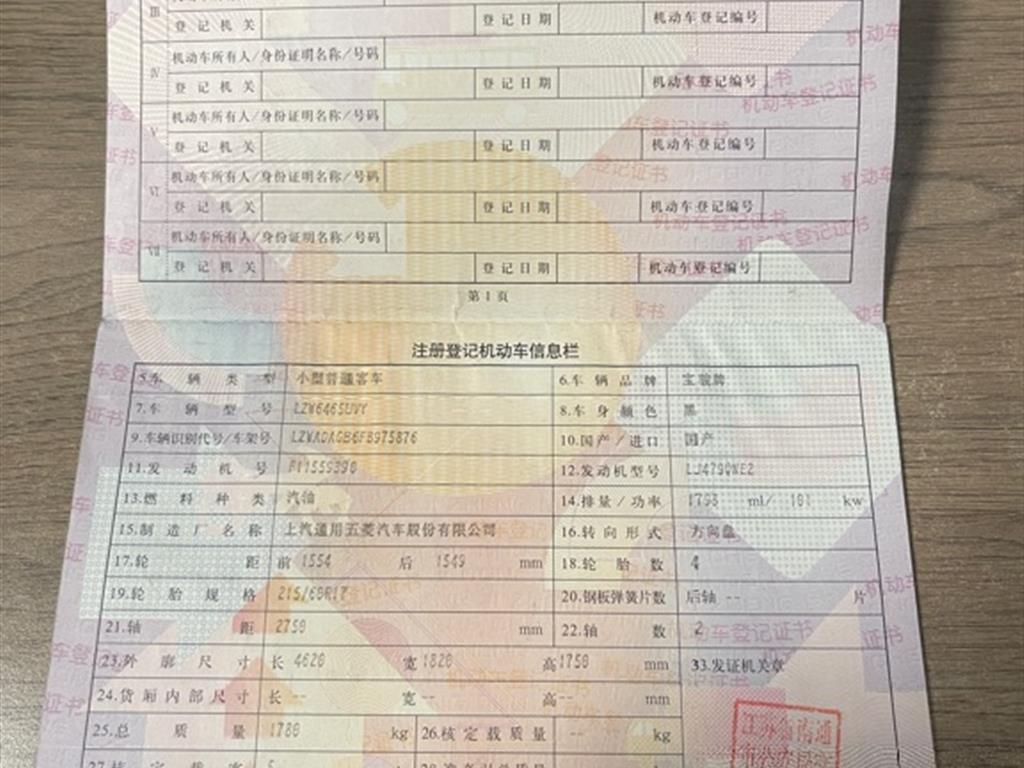 III
登记机关 登记日期 机动车登记编号
IV 机动车所有人/身份证明名称/号码
登记机关 登记日期 机动车登记编号
V 机动车所有人/身份证明名称/号码
登记机关 登记日期 机动车登记编号
VI 机动车所有人/身份证明名称/号码
登记机关 登记日期 机动车登记编号
VII 机动车所有人/身份证明名称/号码
登记机关 登记日期 机动车登记编号
第1页
注册登记机动车信息栏
5.车辆类型 小型普通客车 6.车辆品牌 宝骏牌
7.车辆型号 LZW6465UVY 8.车身颜色 黑
9.车辆识别代号/车架号 LZWADAGB6FB975876 10.国产/进口 国产
11.发动机号 12.发动机型号 LJ479QNE2
13.燃料种类 汽油 14.排量/功率 1798 ml/ 101 kw
15.制造厂名称 上汽通用五菱汽车股份有限公司 16.转向形式 方向盘
17.轮距 前 1554 后 1549 mm 18.轮胎数 4
19.轮胎规格 215/60R17 20.钢板弹簧片数 后轴 -- 片
21.轴距 2750 mm 22.轴数 2
23.外廓尺寸 长 4620 宽 1820 高 1750 mm 33.发证机关章
24.货厢内部尺寸 长 -- 宽 -- 高 -- mm
25.总质量 1780 kg 26.核定载质量 -- kg
江苏省南通